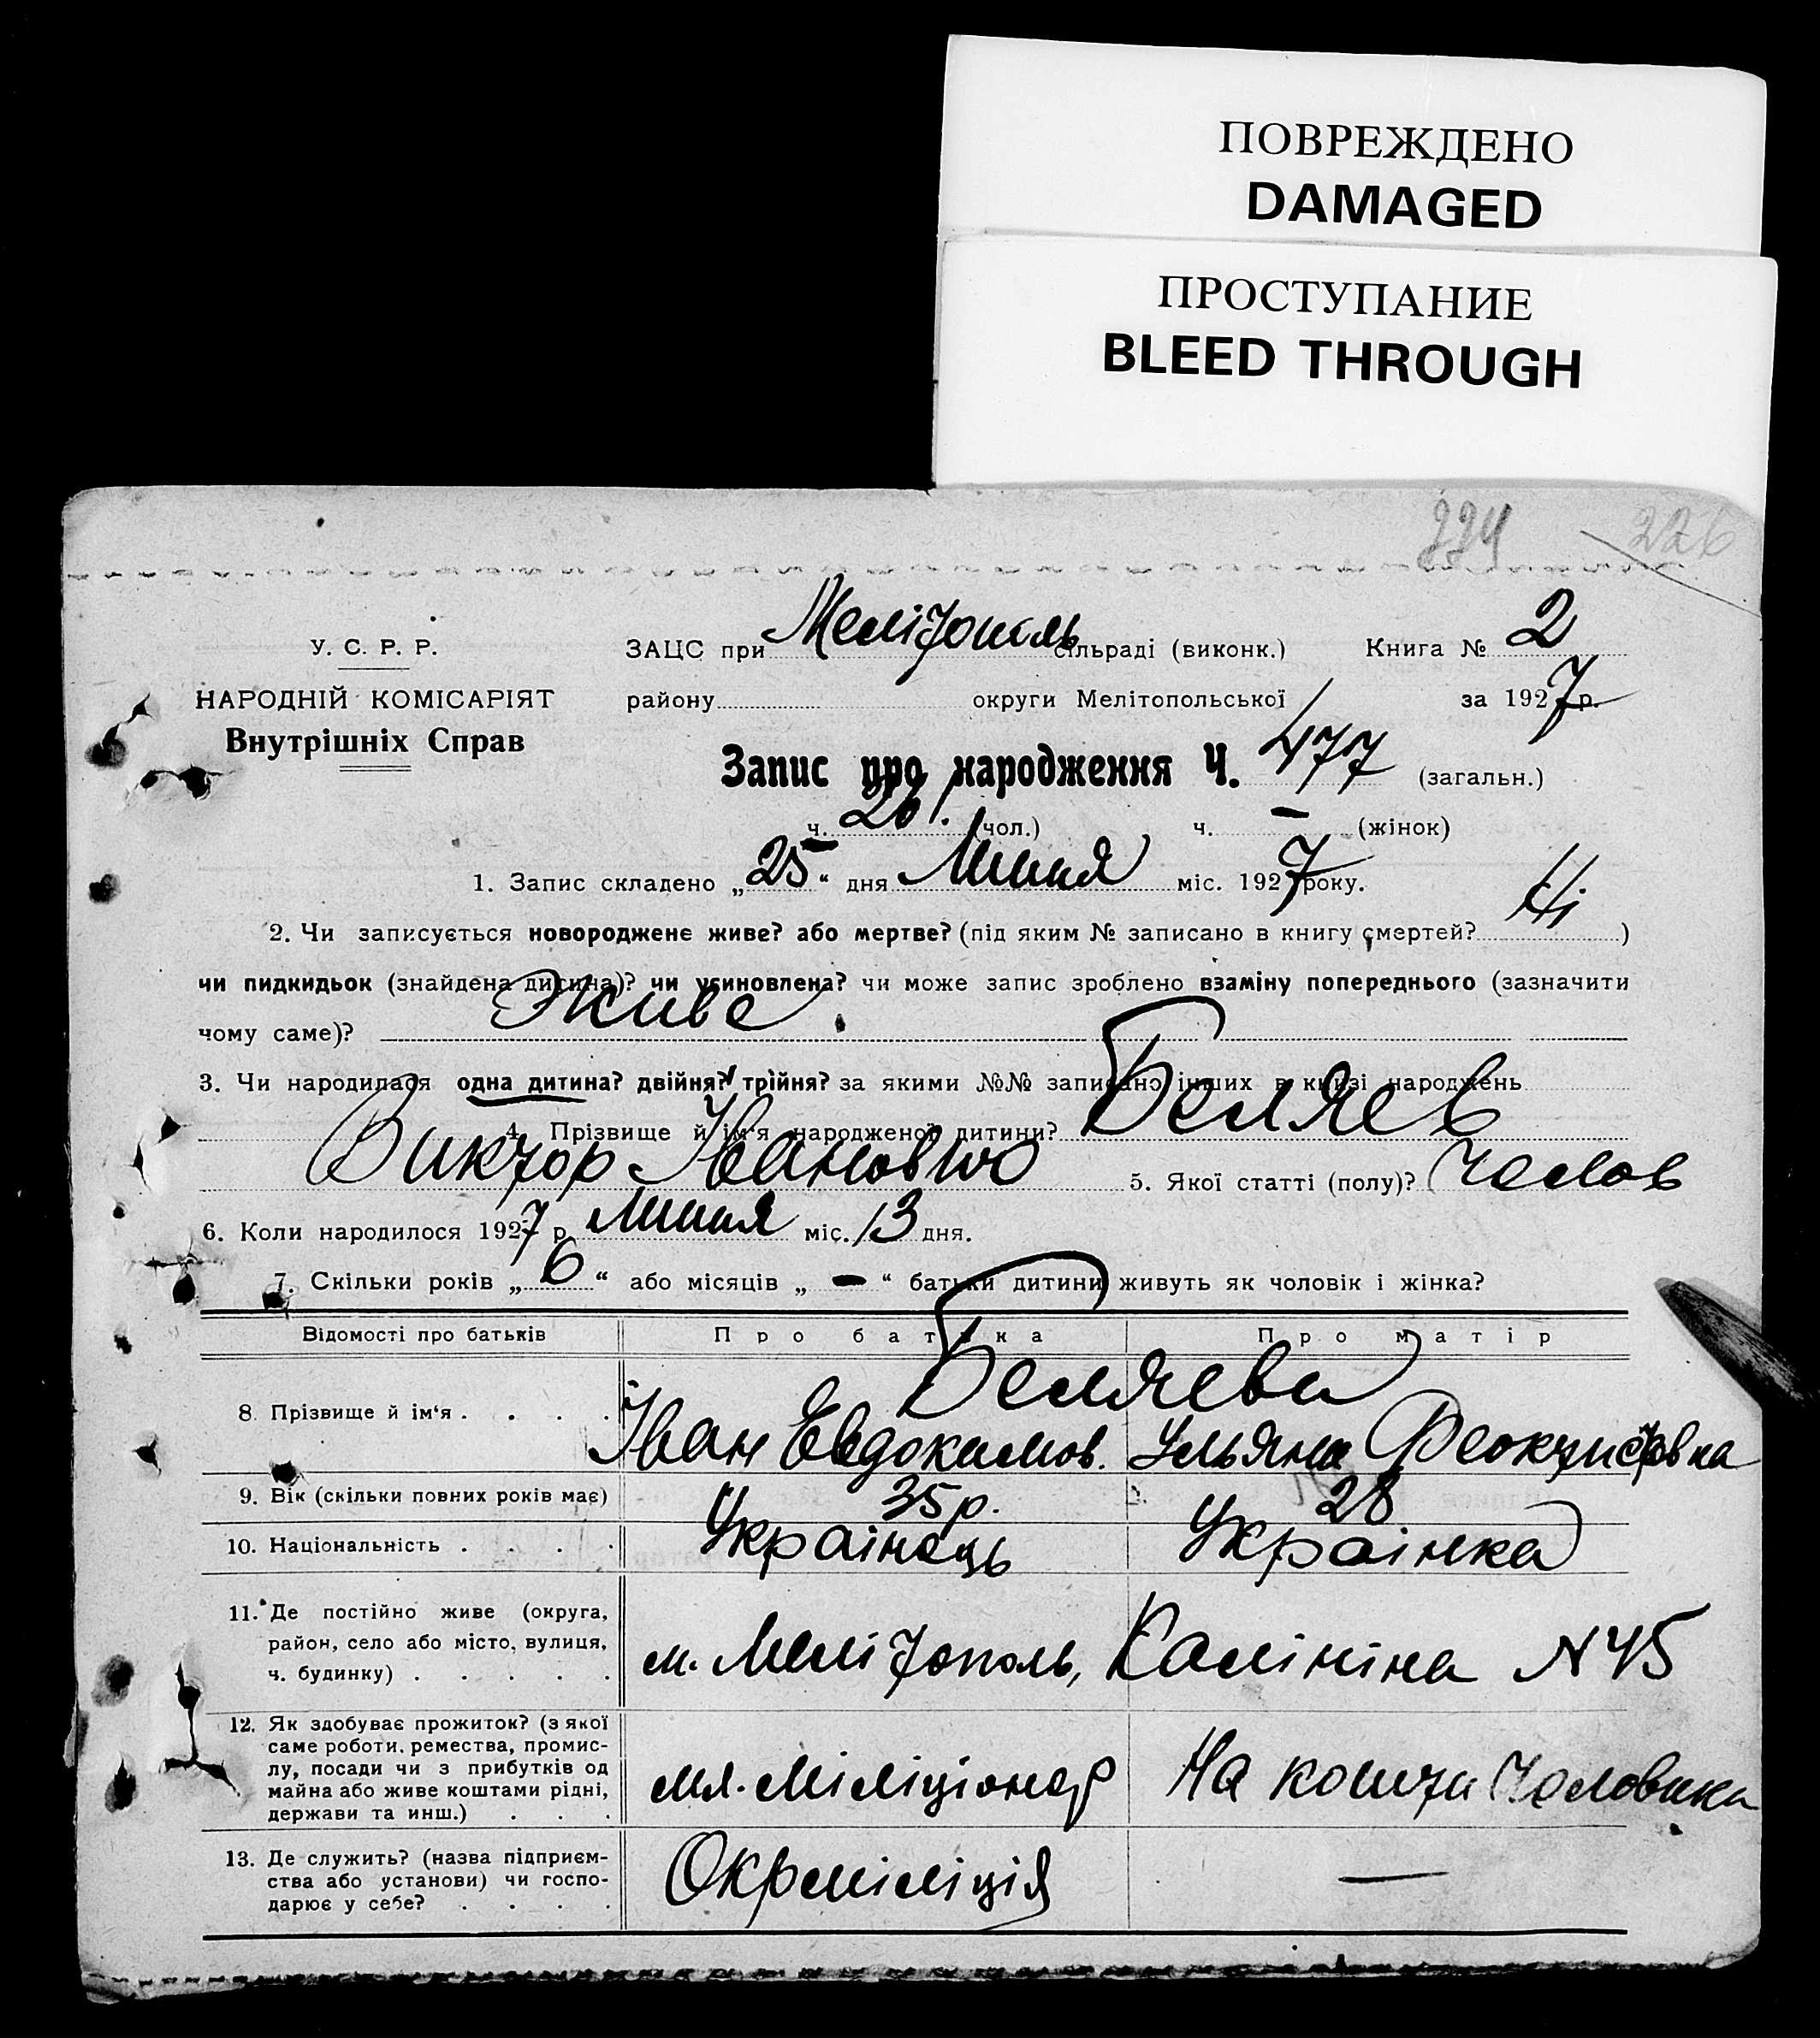 ПОВРЕЖДЕНО
DAMAGED
ПРОСТУПАНИЕ
BLEED THROUGH
224 226
У. С. Р. Р.
НАРОДНІЙ КОМІСАРІЯТ
Внутрішніх Справ
ЗАЦС при Мелітополь сільраді (виконк.) Книга № 2
району округи Мелітопольської за 1927 р.
Запис про народження Ч. 477 (загальн.)
ч. 261. (чол.) ч. – (жінок)
1. Запис складено „25“ дня Липня міс. 1927 року.
2. Чи записується новороджене живе? або мертве? (під яким № записано в книгу смертей? Ні )
чи пидкидьок (знайдена дитина)? чи усиновлена? чи може запис зроблено взаміну попереднього (зазначити
чому саме)? Живе.
3. Чи народилася одна дитина? двійня? трійня? за якими №№ записано інших в книзі народжень
4. Прізвище й ім'я народженої дитини? Беляев
Виктор Іванович 5. Якої статті (полу)? Чолов
6. Коли народилося 1927 р. Липня міс. 13 дня.
7. Скільки років „6“ або місяців „–“ батьки дитини живуть як чоловік і жінка?
Відомості про батьків Про батька Про матір
8. Прізвище й ім'я . . . . Беляеви
Іван Евдокимов. Ульяна Феоктистовна
9. Вік (скільки повних років має) 35 р. 28
10. Національність . . . . Українець Українка
11. Де постійно живе (округа,
район, село або місто, вулиця,
ч. будинку) . . . . . м. Мелітополь, Калініна N 45
12. Як здобуває прожиток? (з якої
саме роботи, ремества, промис-
лу, посади чи з прибутків од
майна або живе коштами рідні,
держави та инш.) . . . мл. Міліціонер На кошти Чоловика
13. Де служить? (назва підприєм-
ства або установи) чи госпо-
дарює у себе? . . . . Окрміліція —